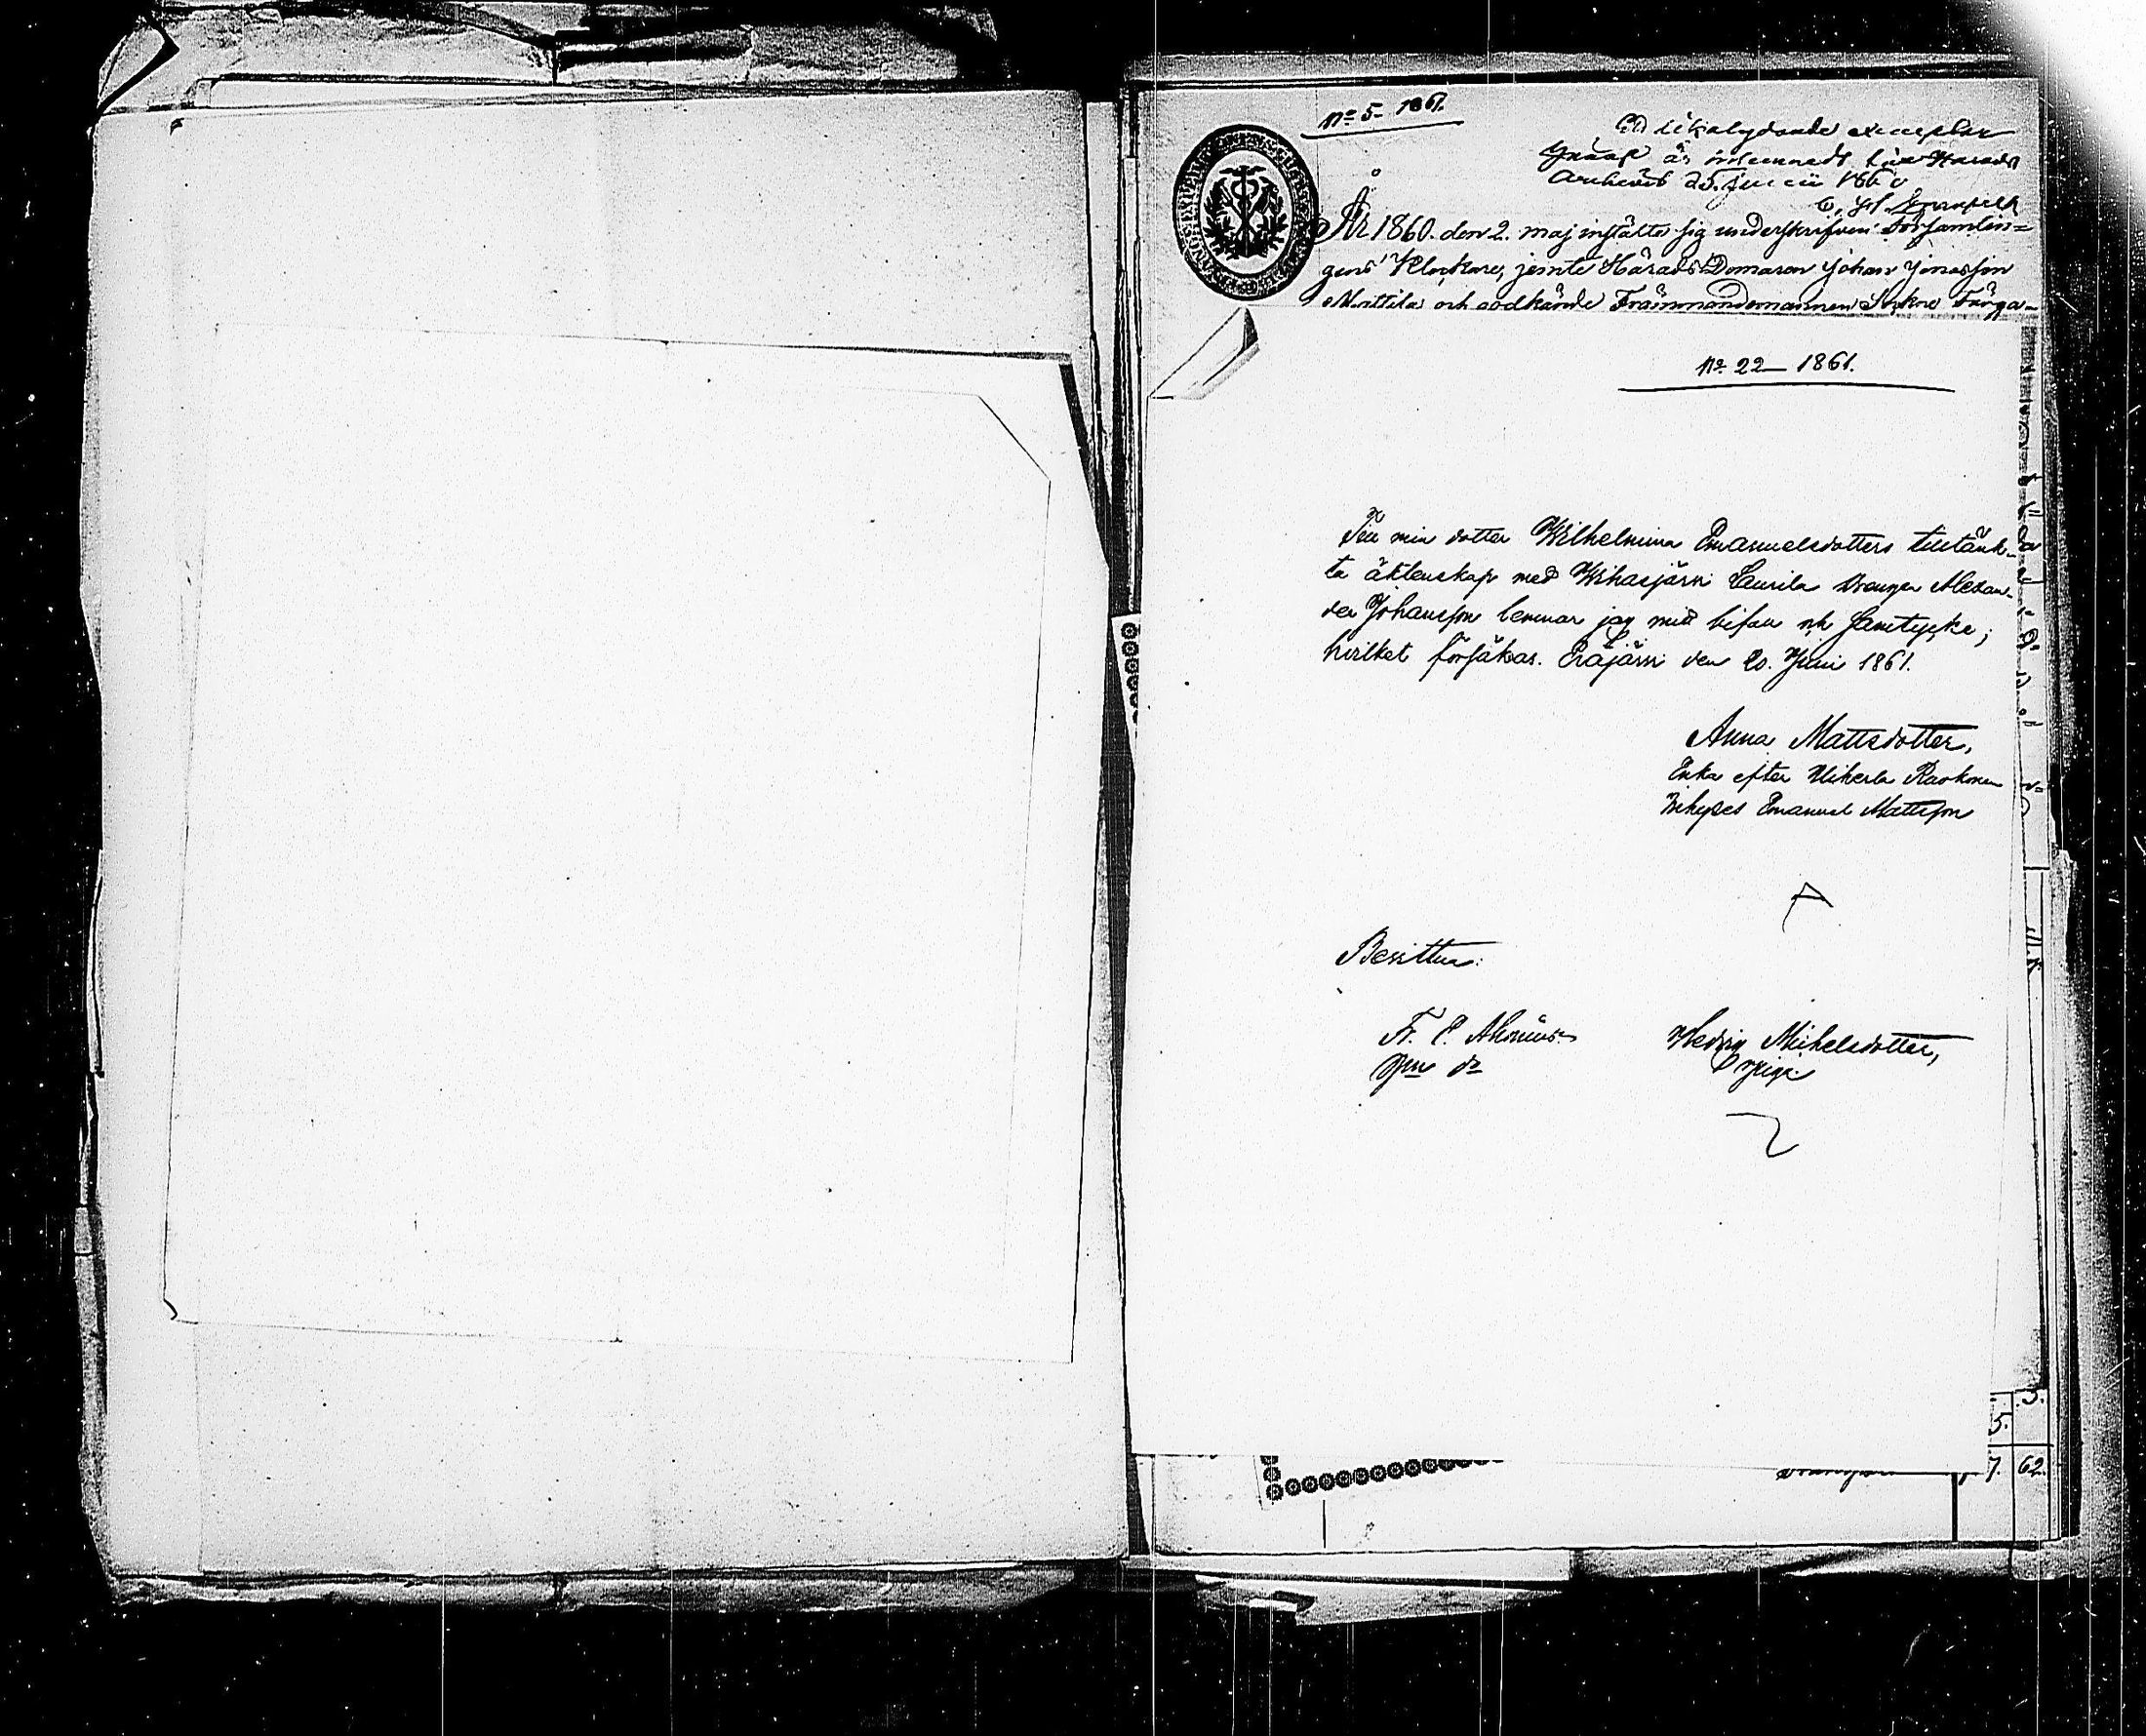 No 5- 1861.
Ett likalydande exemplar
häraf är inlemnadt till Härads
Archivet 25. Junii 1860
År 1860. den 2. maj instälte sig underskrifven Församlin=
gens Klockare, jemte Härads Domaren Johan Jonasson
Mattila och godkände Främmandemannen Sockne Färga-
No 22 - 1861.
Till min dotter Wilhelmina Emanuelsdotters tilltänk-
ta äktenskap med Wihasjärvi Eerila Drengen Alexan-
der Johansson lemnar jag mitt bifall och samtycke;
hvilket försäkras. Eräjärvi den 20. Juni 1861.
Anna Mattsdotter,
Enka efter Uiherla Raukonen
Inhyses Emanuel Mattsson
Bevittna:
Fr. E. Ahonius
Hedvig Michelsdotter,
Piga
5.
3.
7.
62.